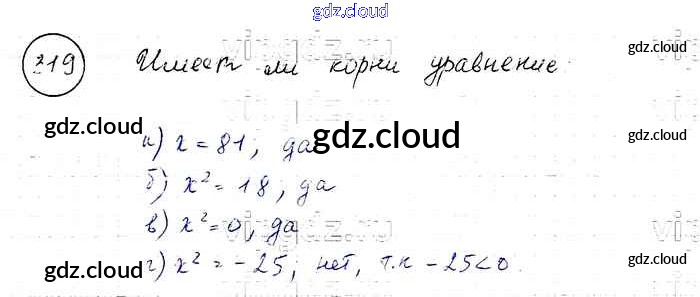 gdz.cloud
319 Имеет ли корни уравнение
gdz.cloud
gdz.cloud
gdz.cloud
а) x = 81, да
б) x² = 18, да
gdz.cloud
в) x² = 0, да
gdz.cloud
г) x² = -25, нет, т.к -25<0.
gdz.cloud